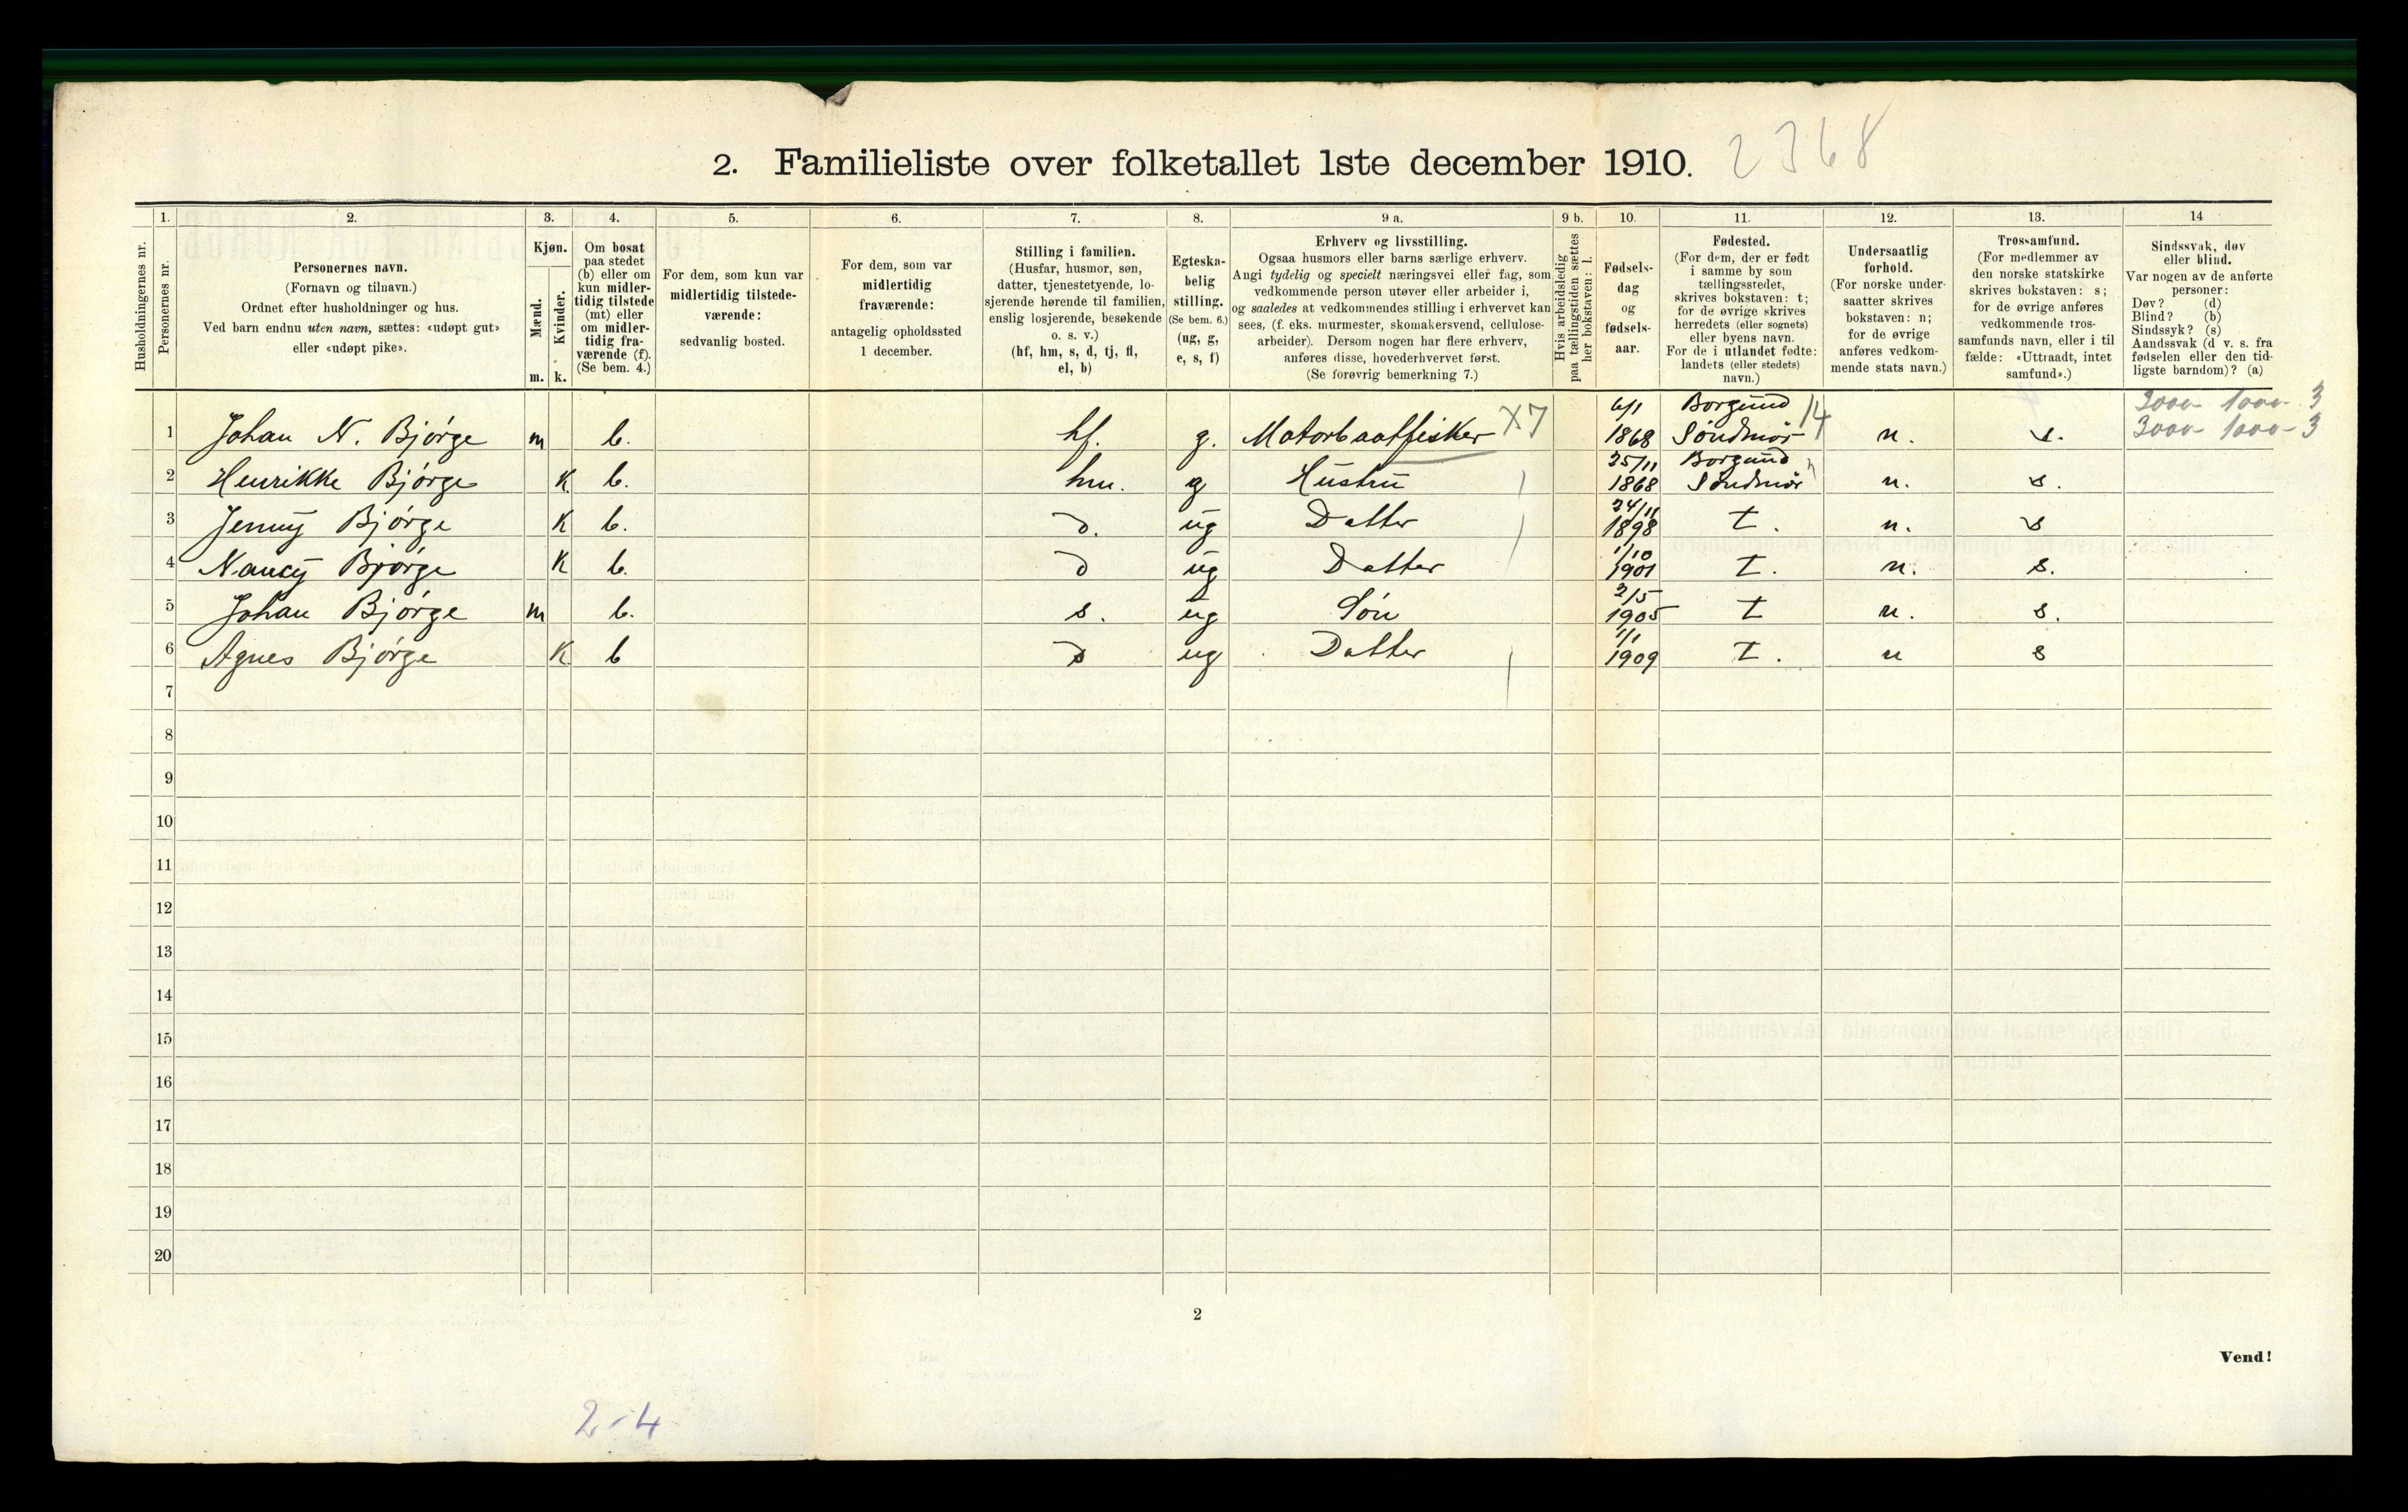 2. Familieliste over folketallet 1ste december 1910. 2368
1. 2. 3. 4. 5. 6. 7. 8. 9 a. 9 b. 10. 11. 12. 13. 14
Husholdningernes nr.
Personernes nr.
Personernes navn.
(Fornavn og tilnavn.)
Ordnet efter husholdninger og hus.
Ved barn endnu uten navn, sættes: «udøpt gut»
eller «udøpt pike».
Kjøn.
Mænd.
Kvinder.
m. k.
Om bosat
paa stedet
(b) eller om
kun midler-
tidig tilstede
(mt) eller
om midler-
tidig fra-
værende (f).
(Se bem. 4.)
For dem, som kun var
midlertidig tilstede-
værende:
sedvanlig bosted.
For dem, som var
midlertidig
fraværende:
antagelig opholdssted
1 december.
Stilling i familien.
(Husfar, husmor, søn,
datter, tjenestetyende, lo-
sjerende hørende til familien,
enslig losjerende, besøkende
o. s. v.)
(hf, hm, s, d, tj, fl,
el, b)
Egteska-
belig
stilling.
(Se bem. 6.)
(ug, g,
e, s, f)
Erhverv og livsstilling.
Ogsaa husmors eller barns særlige erhverv.
Angi tydelig og specielt næringsvei eller fag, som
vedkommende person utøver eller arbeider i,
og saaledes at vedkommendes stilling i erhvervet kan
sees, (f. eks. murmester, skomakersvend, cellulose-
arbeider). Dersom nogen har flere erhverv,
anføres disse, hovederhvervet først.
(Se forøvrig bemerkning 7.)
Hvis arbeidsledig
paa tællingstiden sættes
her bokstaven: l.
Fødsels-
dag
og
fødsels-
aar.
Fødested.
(For dem, der er født
i samme by som
tællingsstedet,
skrives bokstaven: t;
for de øvrige skrives
herredets (eller sognets)
eller byens navn.
For de i utlandet fødte:
landets (eller stedets)
navn.)
Undersaatlig
forhold.
(For norske under-
saatter skrives
bokstaven: n;
for de øvrige
anføres vedkom-
mende stats navn.)
Trossamfund.
(For medlemmer av
den norske statskirke
skrives bokstaven: s;
for de øvrige anføres
vedkommende tros-
samfunds navn, eller i til
fælde: «Uttraadt, intet
samfund».)
Sindssvak, døv
eller blind.
Var nogen av de anførte
personer:
Døv? (d)
Blind? (b)
Sindssyk? (s)
Aandssvak (d v. s. fra
fødselen eller den tid-
ligste barndom)? (a)
6/1 Borgund 14 3000 1000 3
1 Johan N. Bjørge m b. hf. g. Motorbaatfisker X7 1868 Søndmør n. s. 3000 1000 3
25/11 Borgund
2 Henrikke Bjørge K b. hm. g Hustru 1868 Søndmør n. s.
24/11
3 Jenny Bjørge K b. d. ug Datter 1898 t. n. s
1/10
4 Nancy Bjørge K b. d ug Datter 1901 t. n. s.
2/5
5 Johan Bjørge m b. s. ug Søn 1905 t n. s.
1/1
6 Agnes Bjørge K b d ug Datter 1909 t. n s
7
8
9
10
11
12
13
14
15
16
17
18
19
20
2
Vend!
2-4